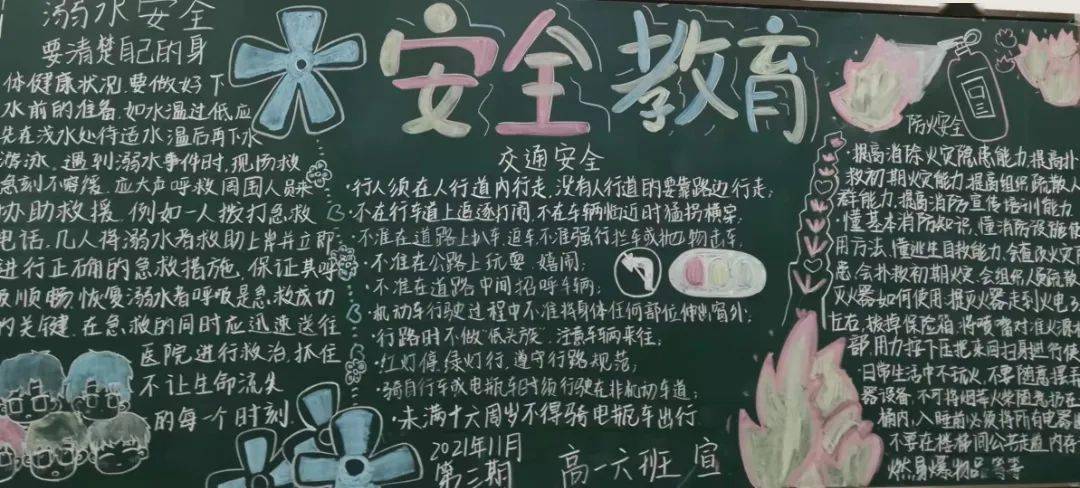 安全教育
溺水安全
要清楚自己的身
体健康状况,要做好下
水前的准备,如水温过低应
先在浅水处待适水温后再下水
游泳。遇到溺水事件时,现场救
急刻不容缓,应大声呼救周围人员来
协助救援。例如一人拨打急救
电话,几人将溺水者救助上岸并立即
进行正确的急救措施。保证其呼
吸顺畅,恢复溺水者呼吸是急救成功
的关键。在急救的同时应迅速送往
医院进行救治,抓住
不让生命流失
的每一个时刻
交通安全
·行人须在人行道内行走,没有人行道的要靠路边行走;
·不在行车道上追逐打闹,不在车辆临近时猛拐横穿;
·不准在道路上扒车,追车,不准强行拦车或抛物击车;
·不准在公路上玩耍、嬉闹;
·不准在道路中间招呼车辆;
·机动车行驶过程中不准将身体任何部位伸出窗外;
行路时不做“低头族”,注意车辆来往;
·红灯停,绿灯行,遵守行路规范;
·骑自行车或电瓶车时须行驶在非机动车道;
·未满十六周岁不得骑电瓶车出行
2021年11月
第三期
高一六班 宣
防火安全
·提高消除火灾隐患能力,提高扑
救初期火灾能力,提高组织疏散人
群能力,提高消防宣传培训能力
·懂基本消防知识,懂消防设施使
用方法,懂逃生自救能力,会查改火灾隐
患,会扑救初期火灾,会组织人员疏散
灭火器如何使用:提灭火器走到火电3
左右,拔掉保险箱,将喷嘴对准火源根
部,用力按下压把来回扫身进行使
·日常生活中不玩火,不要随意摆弄
器设备,不可将烟蒂火柴随意扔在
桶内,入睡前必须将所有电器
不要在楼梯间公共走道内存
燃易爆物品等等